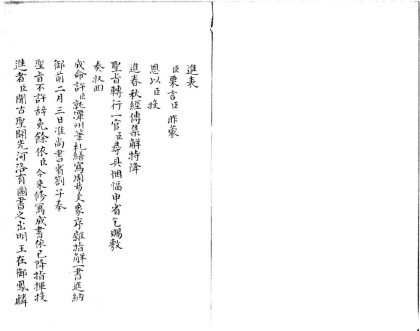 進表
臣栗言臣昨蒙
恩以臣投
進春秋經傳集解特降
聖旨轉行一官臣尋具悃愊申省乞賜敷
奏收回
成命許臣就潭州筆札繕寫周易爻象序雜指解一書進納
御前二月三日准尚書省劄子奉
聖旨不許辭免餘依臣今來修寫成書依已降指揮投
進者臣聞古聖開先河洛有圖書之出明王在御鳳麟